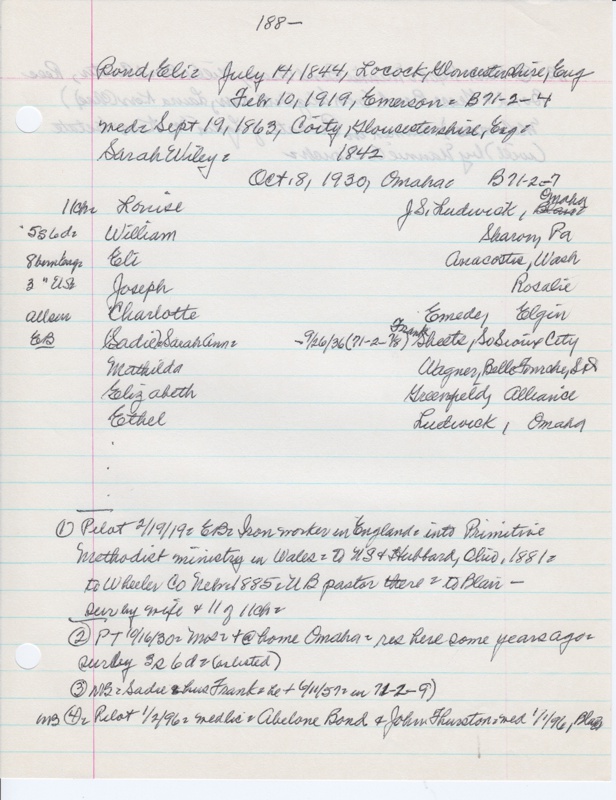 188-
Bond, Eli = July 14, 1844, Locock, Gloucestershire, Eng
Feb 10, 1919, Emerson = B71-2-4
med = Sept 19, 1863, Coity, Gloucestershire, Eng =
Sarah Wiley = 1842
Oct 8, 1930, Omaha = B71-2-7
11ch = Louise J.S. Ludwick, Omaha
5s 6d = William Sharon, Pa
8 born Eng = Eli Anacostia, Wash
3 " USA Joseph Rosalie
all surv Charlotte Emede, Elgin
EB (Sadie) Sarah Ann = -9/26/36 (71-2-7/8) Frank Sheets, So Sioux City
Mathilda Wagner, Belle Fourche, S.D
Elizabeth Greenfield, Alliance
Ethel Ludwick, Omaha
① Pilot 2/19/19 = EB = Iron worker in England = into Primitive
Methodist ministry in Wales = to US & Hubbard, Ohio, 1881 =
to Wheeler Co Nebr = 1885 = UB pastor there = to Blair -
sur by wife & 11 of 11ch =
② PT 10/16/30 = Mos = + @ home Omaha = res here some years ago =
sur by 3s 6d = (as listed)
③ MB = Sadie & hus Frank = he + 6/11/57 = in 71-2-9)
MB ④ = Pilot 1/2/96 = med lic = Abelone Bond & John Thurston = med 1/1/96, Blair